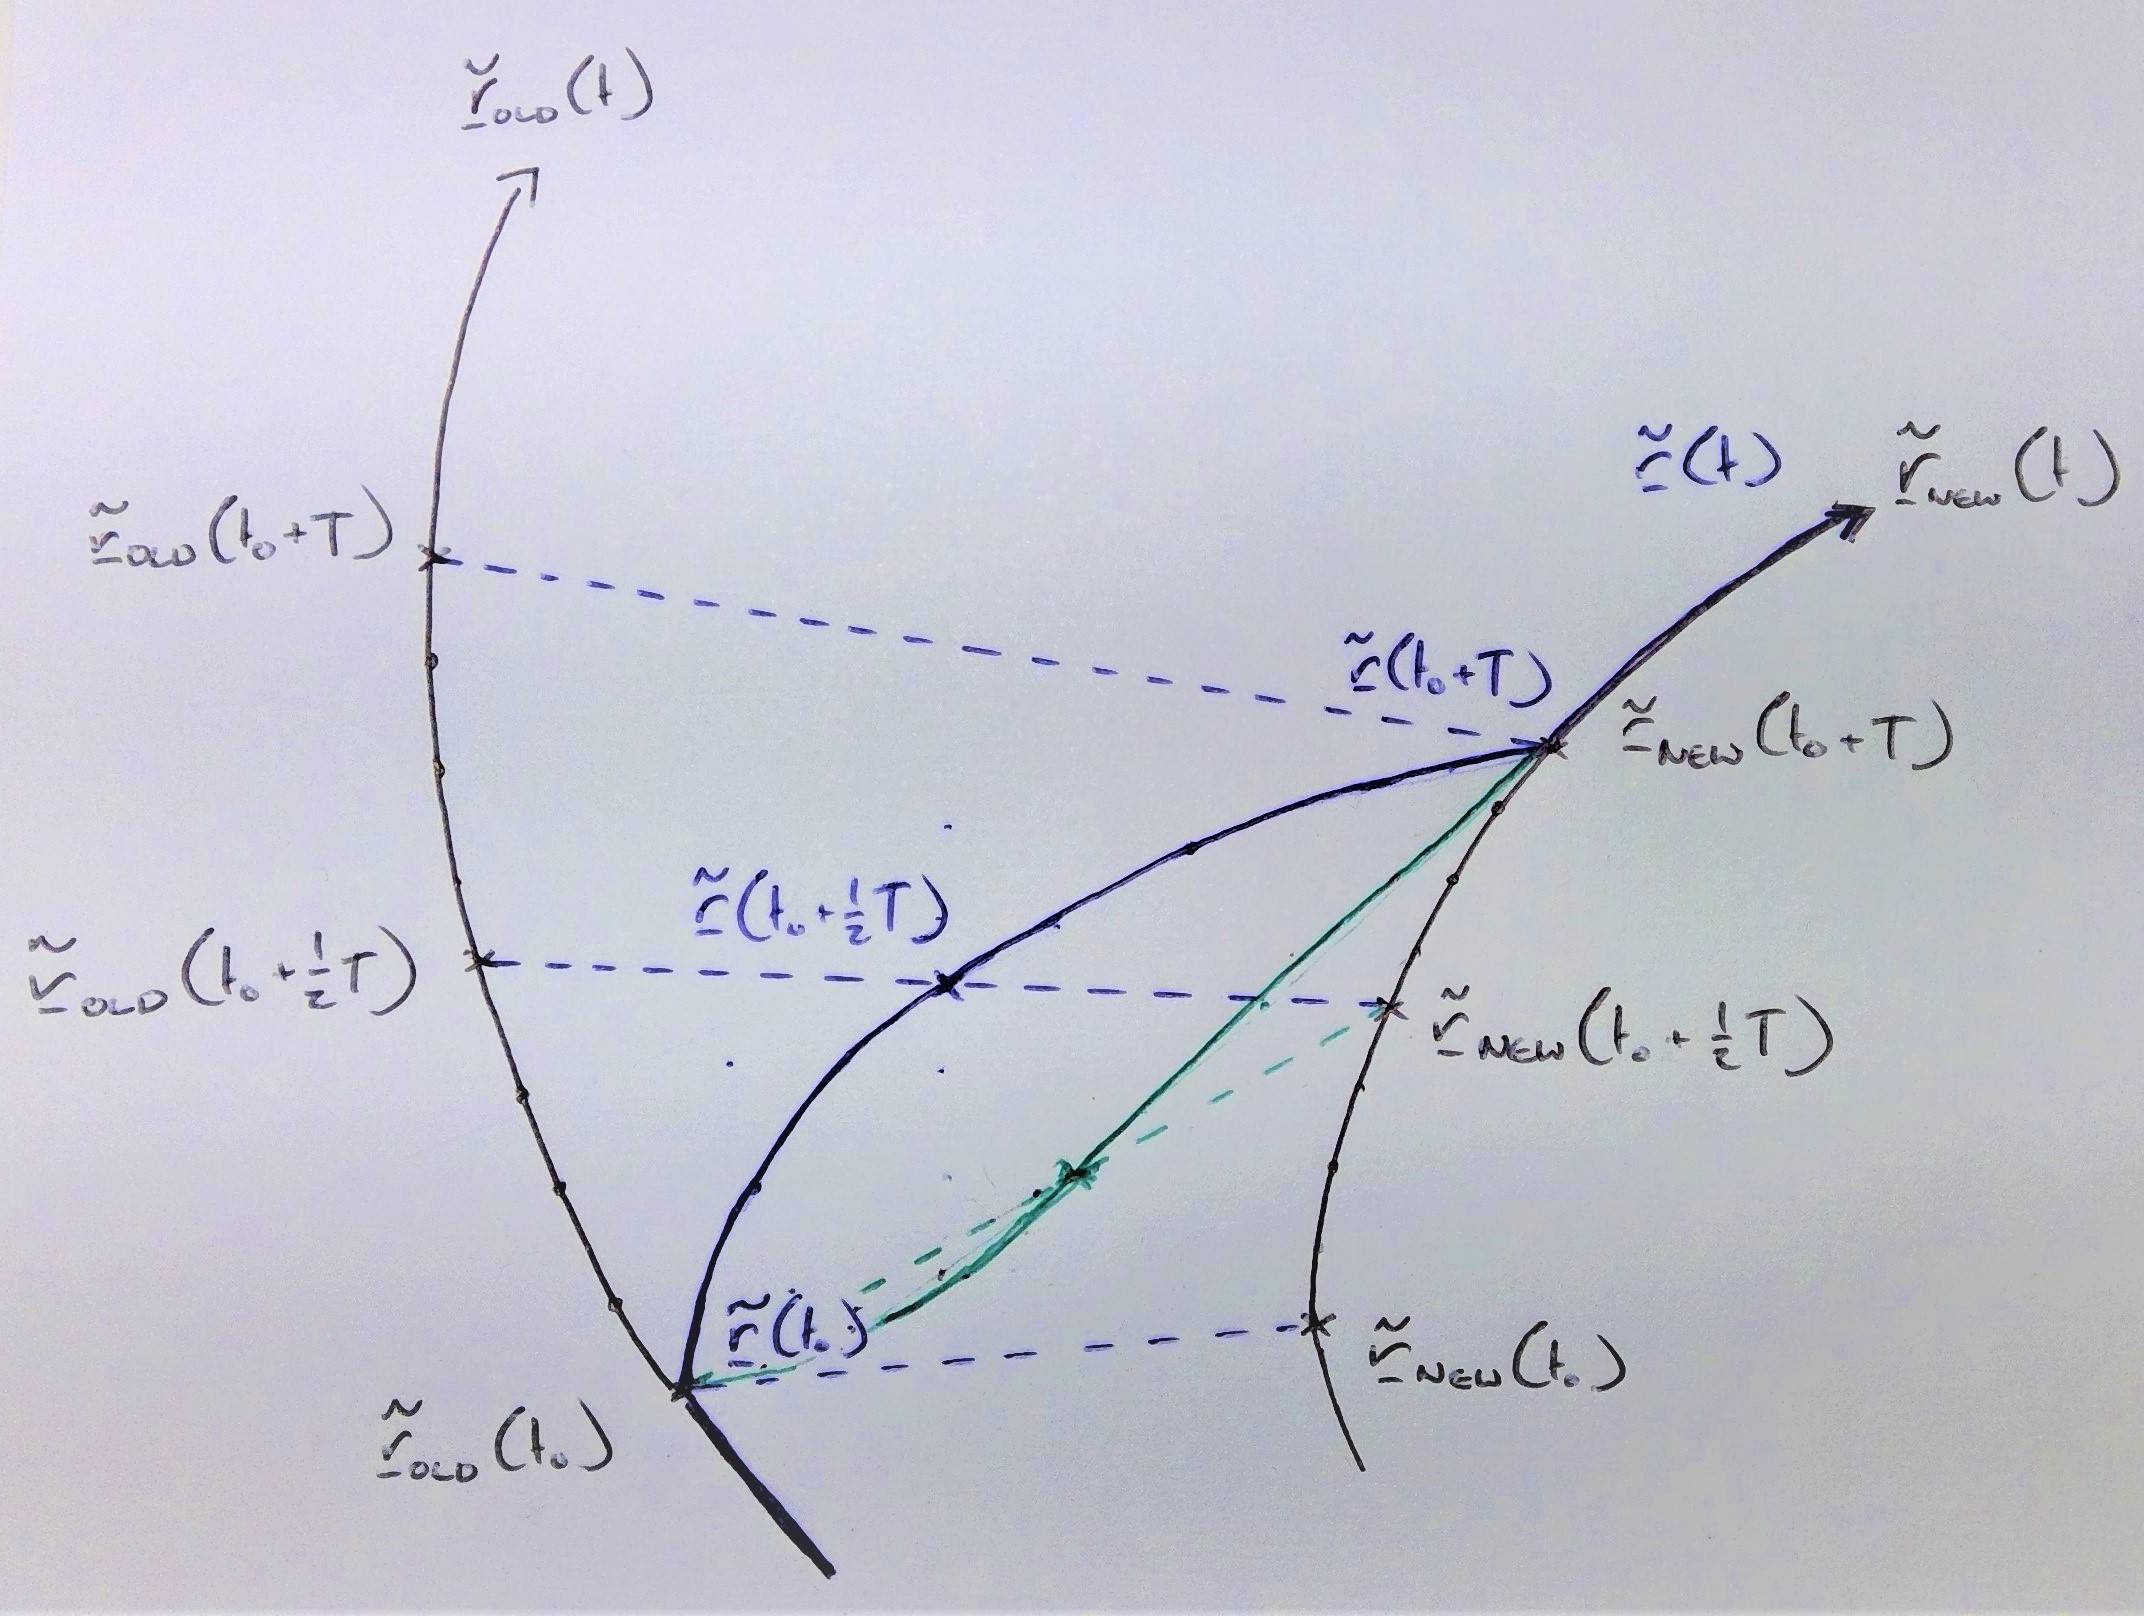 r̲̃OLD(t₀)
r̲̃OLD(t)
r̲̃(t) r̲̃NEW(t)
r̲̃OLD(t₀+T)
r̲̃(t₀+T)
r̲̃NEW(t₀+T)
r̲̃(t₀+½T)
r̲̃OLD(t₀+½T)
r̲̃NEW(t₀+½T)
r̲̃(t₀)
r̲̃NEW(t₀)